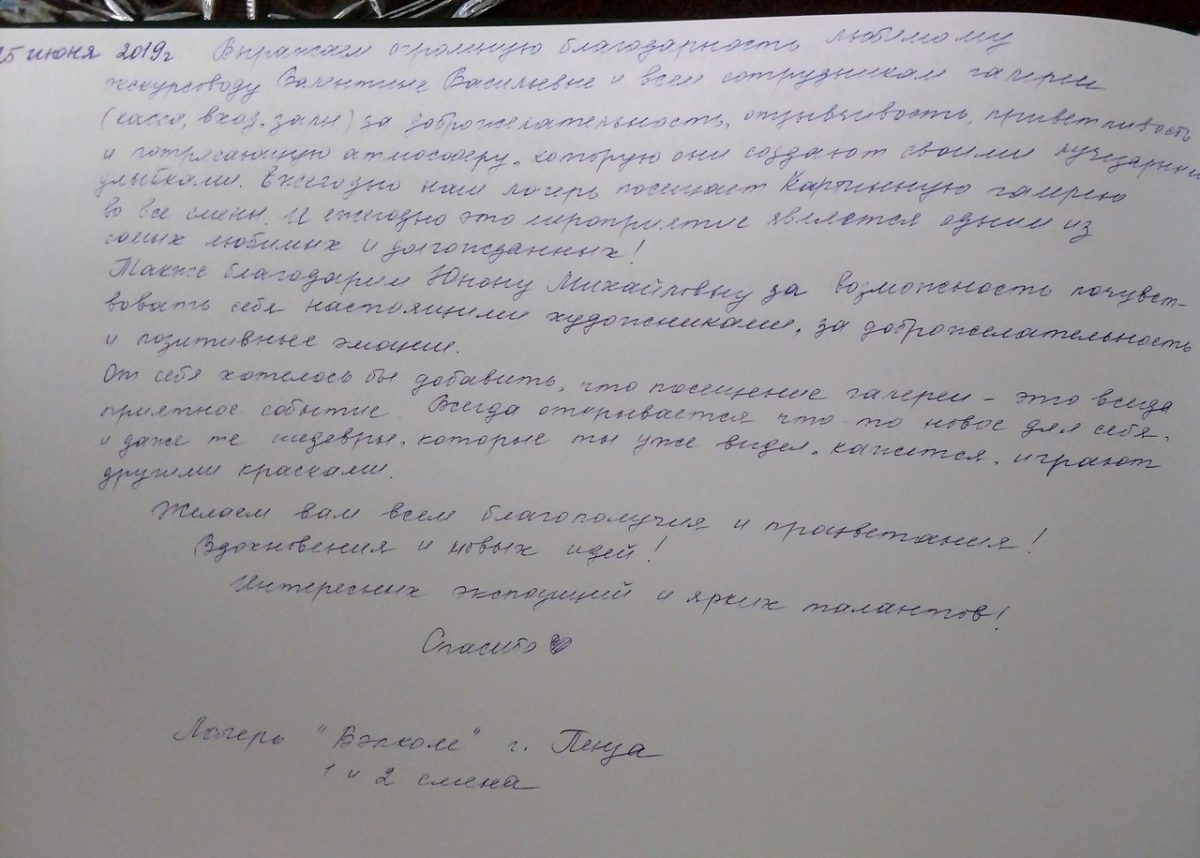 25 июня 2019г Выражаем огромную благодарность любимому
экскурсоводу Валентине Васильевне и всем сотрудникам галереи
(касса, вход, залы) за доброжелательность, отзывчивость, приветливость
и потрясающую атмосферу, которую они создают своими лучезарными
улыбками. Ежегодно наш лагерь посещает Картинную галерею
во все смены. И ежегодно это мероприятие является одним из
самых любимых и долгожданных!
Также благодарим Юнону Михайловну за возможность почувст-
вовать себя настоящими художниками, за доброжелательность
и позитивные эмоции.
От себя хотелось бы добавить, что посещение галереи - это всегда
приятное событие Всегда открывается что-то новое для себя,
и даже те шедевры, которые ты уже видел, кажется, играют
другими красками.
Желаем вам всем благополучия и процветания!
Вдохновения и новых идей!
Интересных экспозиций и ярких талантов!
Спасибо
Лагерь "Вэлком" г. Пенза
1 и 2 смена